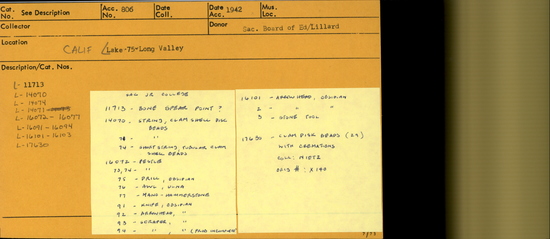 Cat. No. See Description
Acc. No. 806
Date Coll.
Date Acc. 1942
Mus. Loc.
Collector
Donor Sac. Board of Ed/Lillard
Location
CALIF /Lake-75-Long Valley
Description/Cat. Nos.
L- 11713
L- 14070
L- 14074
L- 14071
L- 16072 - 16077
L- 16091 - 16094
L- 16101 - 16103
L- 17630
SAC JR COLLEGE
11713 - BONE SPEAR POINT ?
14070 - STRING, CLAM SHELL DISK BEADS
74 - SHORT STRING, TUBULAR CLAM SHELL BEADS
16072 - PESTLE
73, 74 - "
75 - DRILL, OBSIDIAN
76 - AWL, ULNA
77 - MANO - HAMMERSTONE
91 - KNIFE, OBSIDIAN
92 - ARROWHEAD, "
93 - SCRAPER, "
94 - " , "
16101 - ARROWHEAD, OBSIDIAN
2 - " "
3 - STONE TOOL
17630 - CLAM DISK BEADS
WITH CREMATIONS